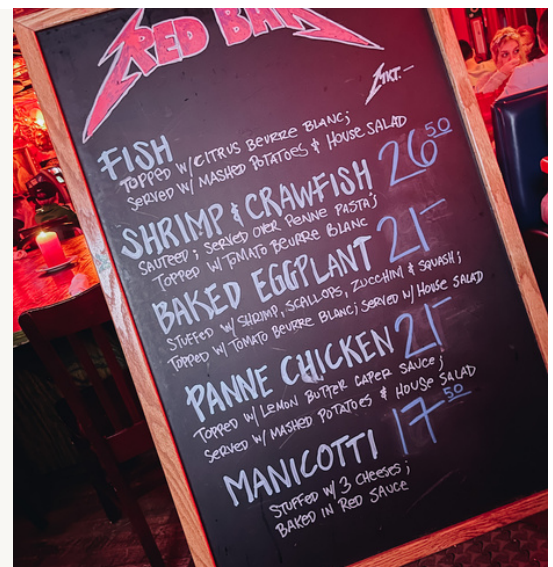 RED BAR
MKT.-
FISH
TOPPED W/ CITRUS BEURRE BLANC;
SERVED W/ MASHED POTATOES & HOUSE SALAD
SHRIMP & CRAWFISH 26 50
SAUTEED; SERVED OVER PENNE PASTA;
TOPPED W/ TOMATO BEURRE BLANC
BAKED EGGPLANT 21-
STUFFED W/ SHRIMP, SCALLOPS, ZUCCHINI & SQUASH;
TOPPED W/ TOMATO BEURRE BLANC; SERVED W/ HOUSE SALAD
PANNE CHICKEN 21-
TOPPED W/ LEMON BUTTER CAPER SAUCE;
SERVED W/ MASHED POTATOES & HOUSE SALAD
MANICOTTI 17 50
STUFFED W/ 3 CHEESES;
BAKED IN RED SAUCE